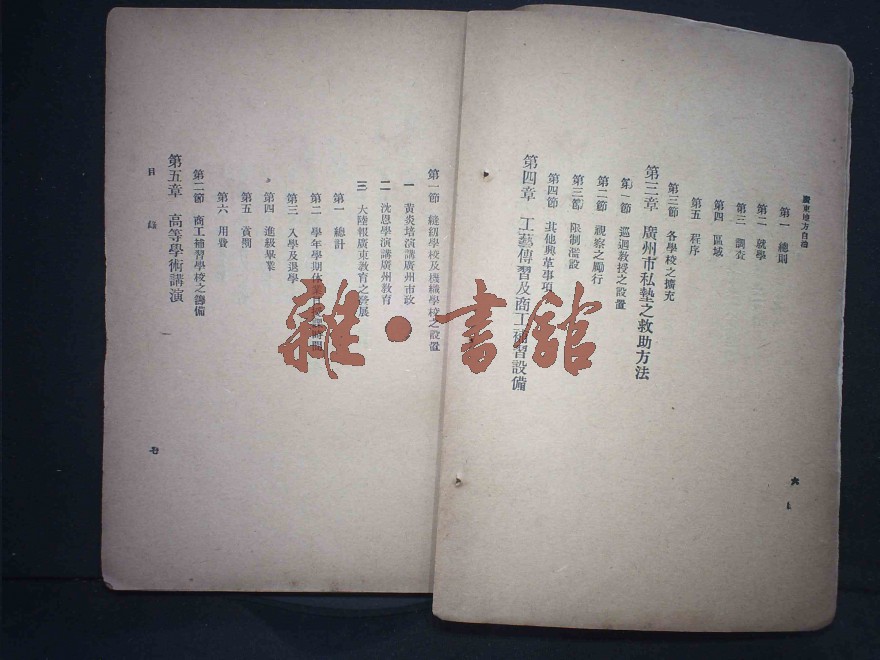 廣東地方自治
第一 總則
第二 就學
第三 調査
第四 區域
第五 程序
第三節 各學校之擴充
第三章 廣州市私塾之救助方法
第一節 巡迴教授之設置
第二節 視察之勵行
第三節 限制濫設
第四節 其他興革事項
第四章 工藝傳習及商工補習設備
六
第一節 縫紉學校及機械學校之設置
一 黃炎培演講廣州市政
二 沈恩學演講廣州教育
三 大陸報廣東教育之發展
第一 總計
第二 學年學期休業日
第三 入學及退學
第四 進級畢業
第五 賞期
第六 用費
第二節 商工補習學校之籌備
第五章 高等學術講演
目錄
七
雜·書館